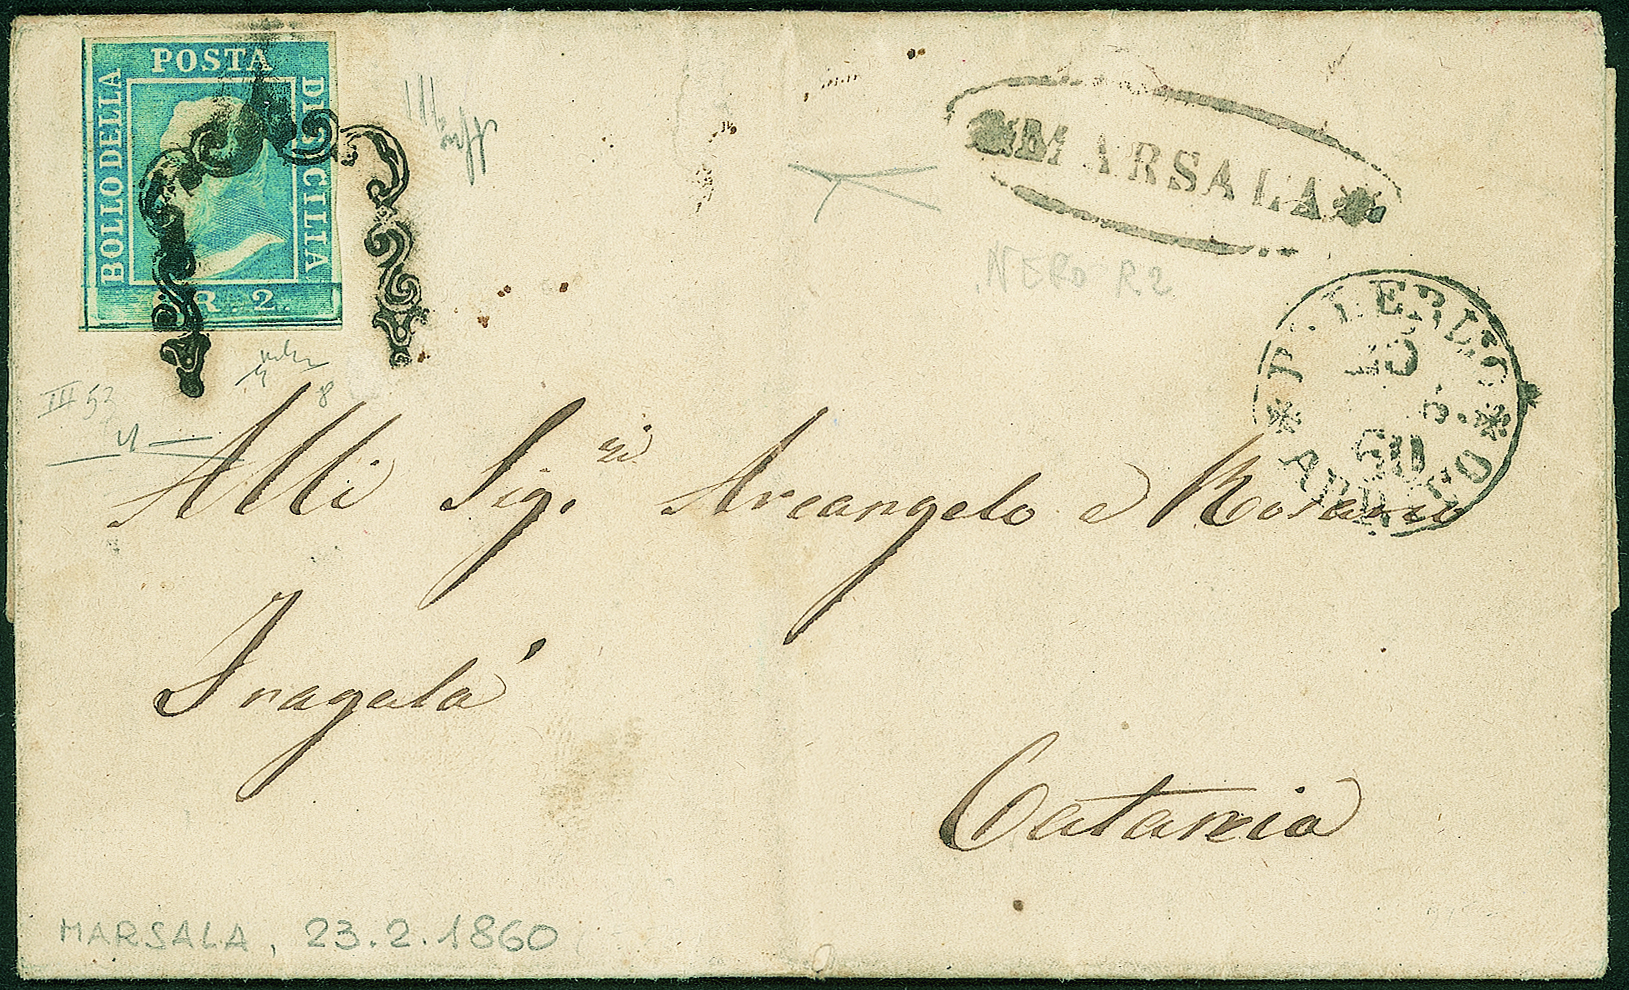 POSTA
BOLLO DELLA
DI SICILIA
GR. 2.
*MARSALA*
NERO R2
PALERMO
25
60
*ARRIVO*
III 52
8
Alli Sig.ri Arcangelo e Rosario
Fragalà
Catania
MARSALA, 23.2.1860